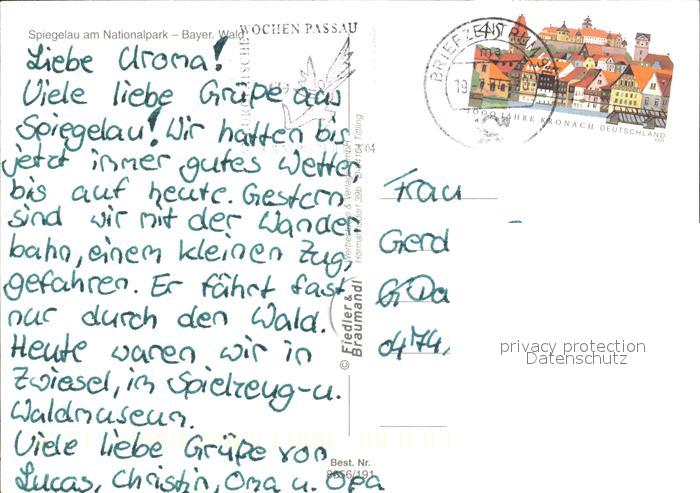 Spiegelau am Nationalpark – Bayer. Wald
WOCHEN PASSAU
Liebe Uroma!
Viele liebe Grüße aus
Spiegelau! Wir hatten bis
jetzt immer gutes Wetter,
bis auf heute. Gestern
sind wir mit der Wander
bahn, einem kleinen Zug,
gefahren. Er fährt fast
nur durch den Wald.
Heute waren wir in
Zwiesel, im Spielzeug- u.
Waldmuseum.
Viele liebe Grüße von
Lucas, Christin, Oma u. Opa
© Fiedler &
Braumandl
Best. Nr.
8656/191
BRIEFZENTRUM
1000 JAHRE KRONACH DEUTSCHLAND
Frau
Gerd
0474
privacy protection
Datenschutz